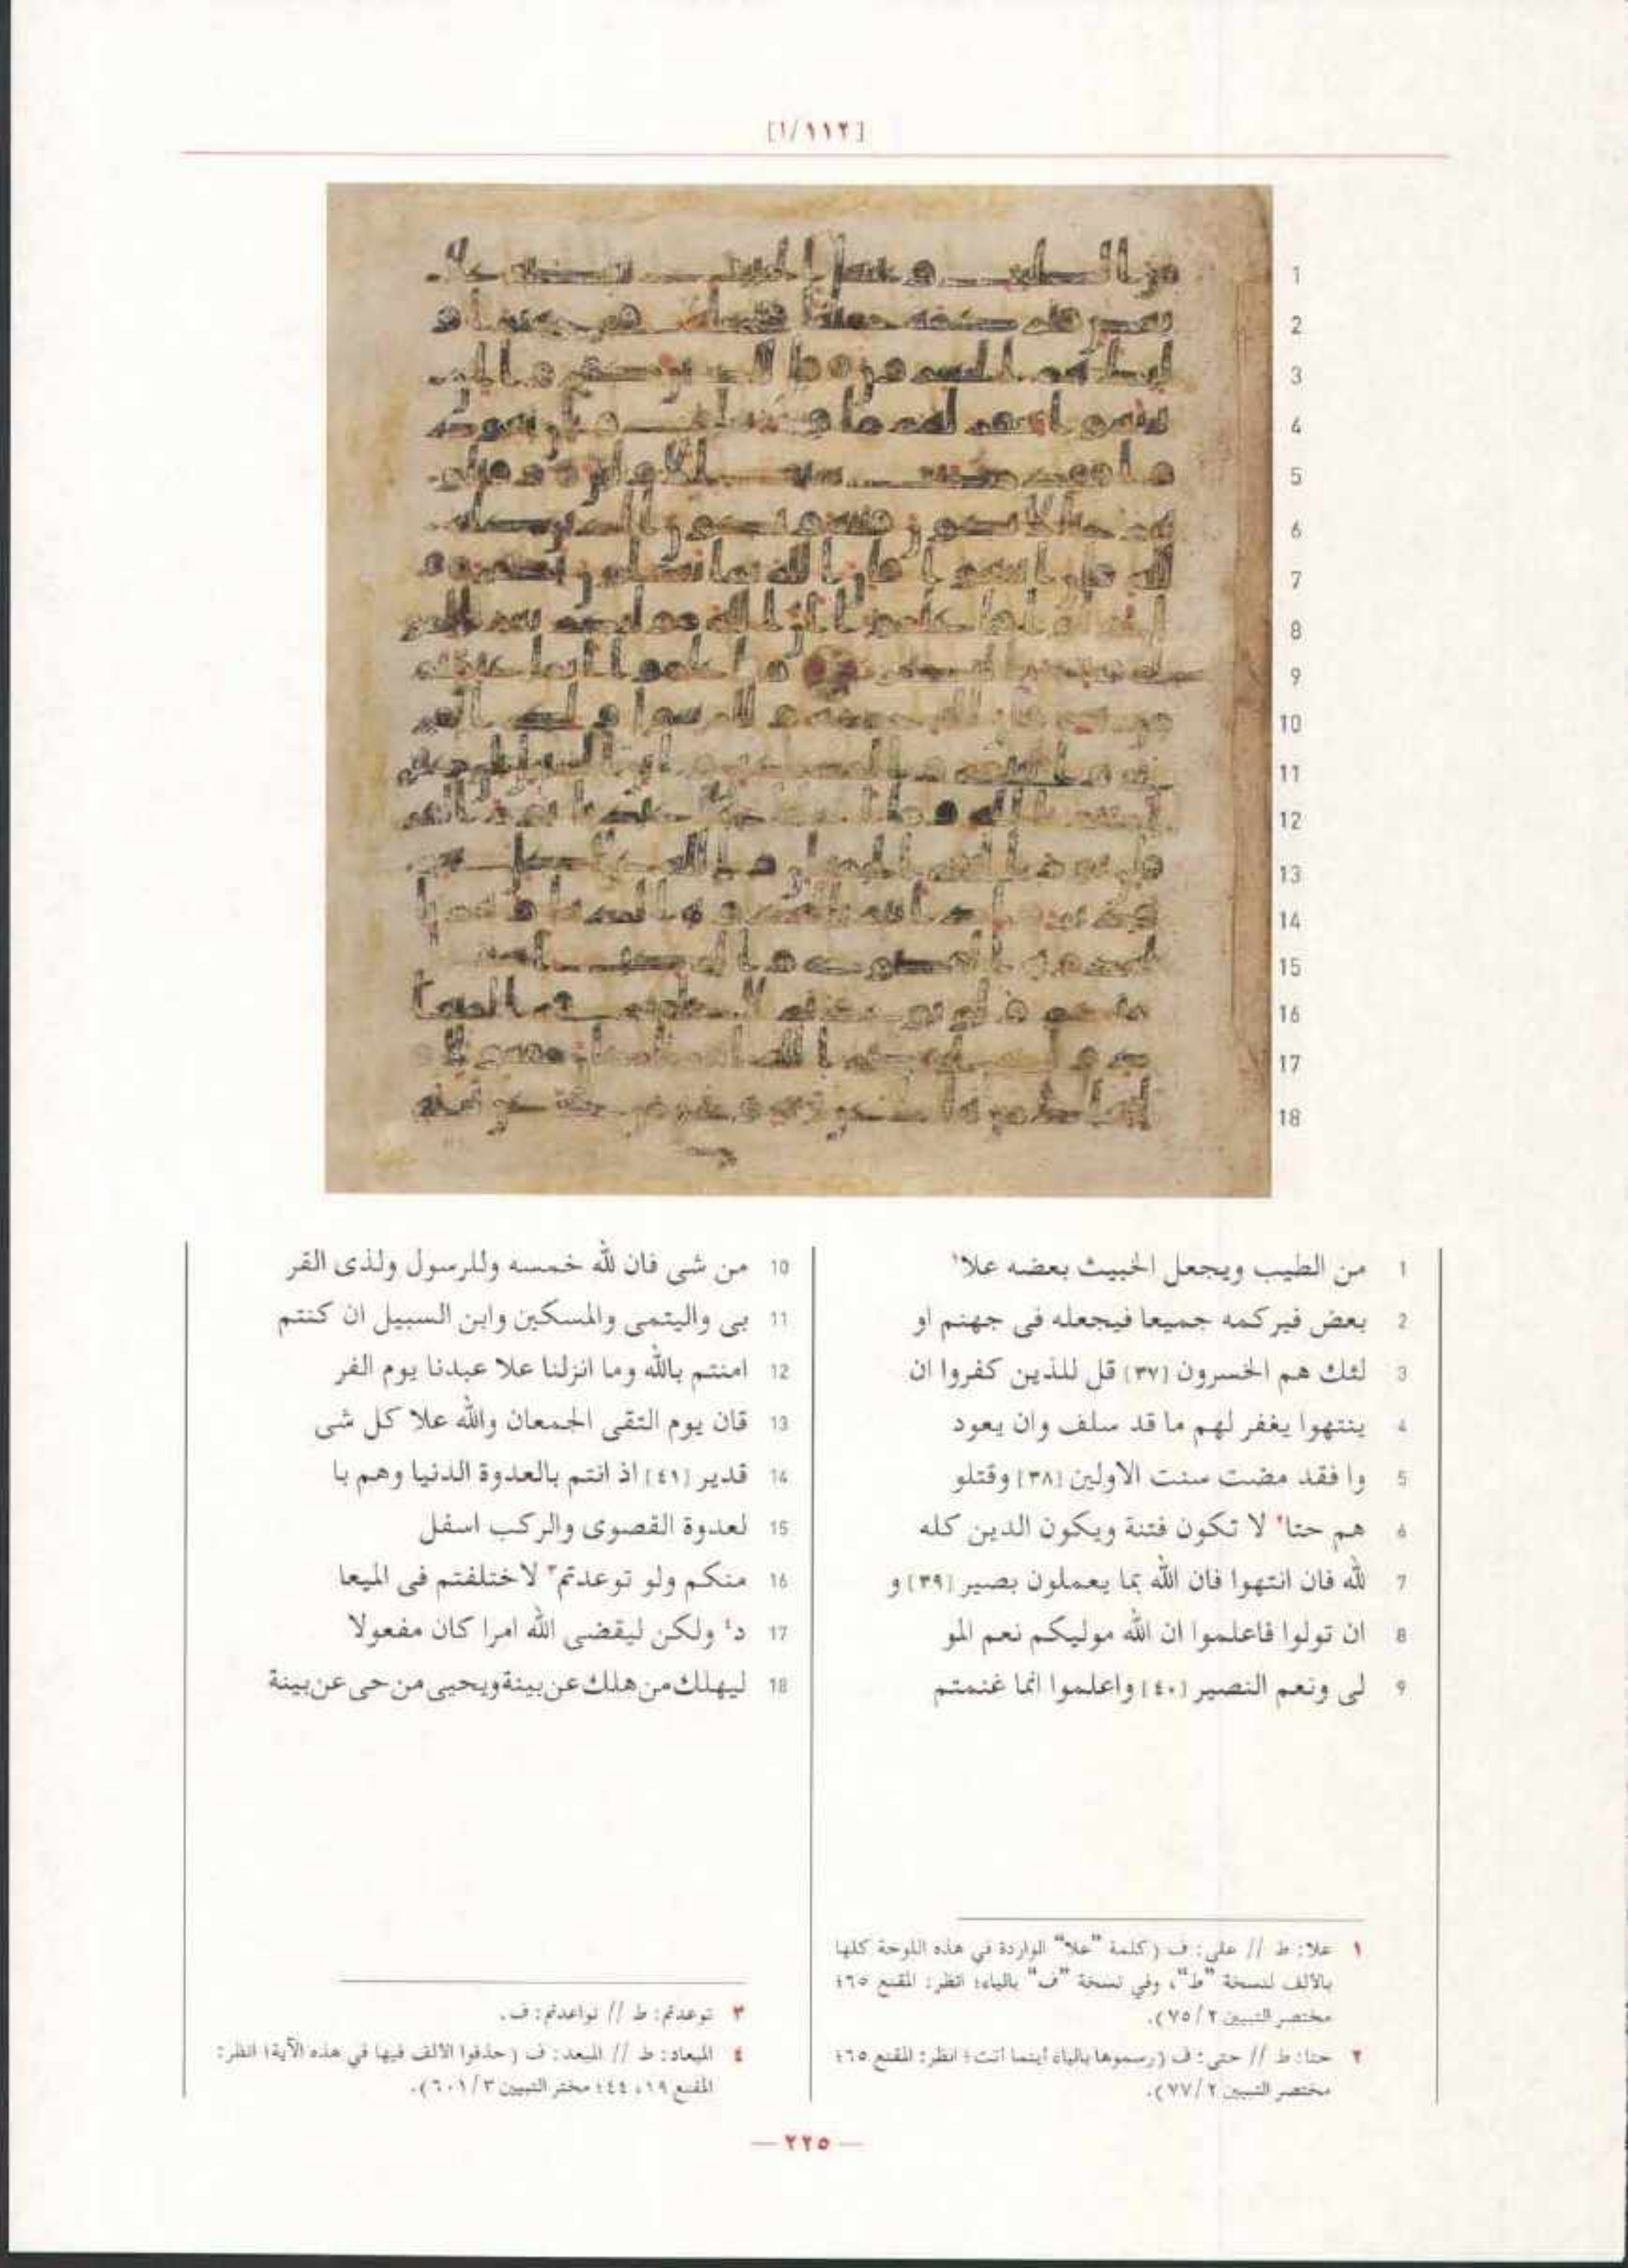 [١/١١٢]
1 من الطيب ويجعل الخبيث بعضه علا١
2 بعض فيركمه جميعا فيجعله فى جهنم او
3 لئك هم الخسرون [٣٧] قل للذين كفروا ان
4 ينتهوا يغفر لهم ما قد سلف وان يعود
5 وا فقد مضت سنت الاولين [٣٨] وقتلو
6 هم حتا٢ لا تكون فتنة ويكون الدين كله
7 لله فان انتهوا فان الله بما يعملون بصير [٣٩] و
8 ان تولوا فاعلموا ان الله موليكم نعم المو
9 لى ونعم النصير [٤٠] واعلموا انما غنمتم
10 من شى فان لله خمسه وللرسول ولذى القر
11 بى واليتمى والمسكين وابن السبيل ان كنتم
12 امنتم بالله وما انزلنا علا عبدنا يوم الفر
13 قان يوم التقى الجمعان والله علا كل شى
14 قدير [٤١] اذ انتم بالعدوة الدنيا وهم با
15 لعدوة القصوى والركب اسفل
16 منكم ولو توعدتم٣ لاختلفتم فى الميعا
17 د٤ ولكن ليقضى الله امرا كان مفعولا
18 ليهلك من هلك عن بينة ويحيى من حى عن بينة
١ علا: ط // على: ف (كلمة "علا" الواردة في هذه اللوحة كلها
بالألف لنسخة "ط"، وفي نسخة "ف" بالياء؛ انظر: المقنع ٦٥؛
مختصر التبيين ٢/٧٥).
٢ حتا: ط // حتى: ف (رسموها بالياء أينما أتت؛ انظر: المقنع ٦٥؛
مختصر التبيين ٢/٧٧).
٣ توعدتم: ط // تواعدتم: ف.
٤ الميعاد: ط // الميعد: ف (حذفوا الألف فيها في هذه الآية؛ انظر:
المقنع ١٩، ٤٤؛ مختر التبيين ٣/٦٠١).
— ٢٢٥ —